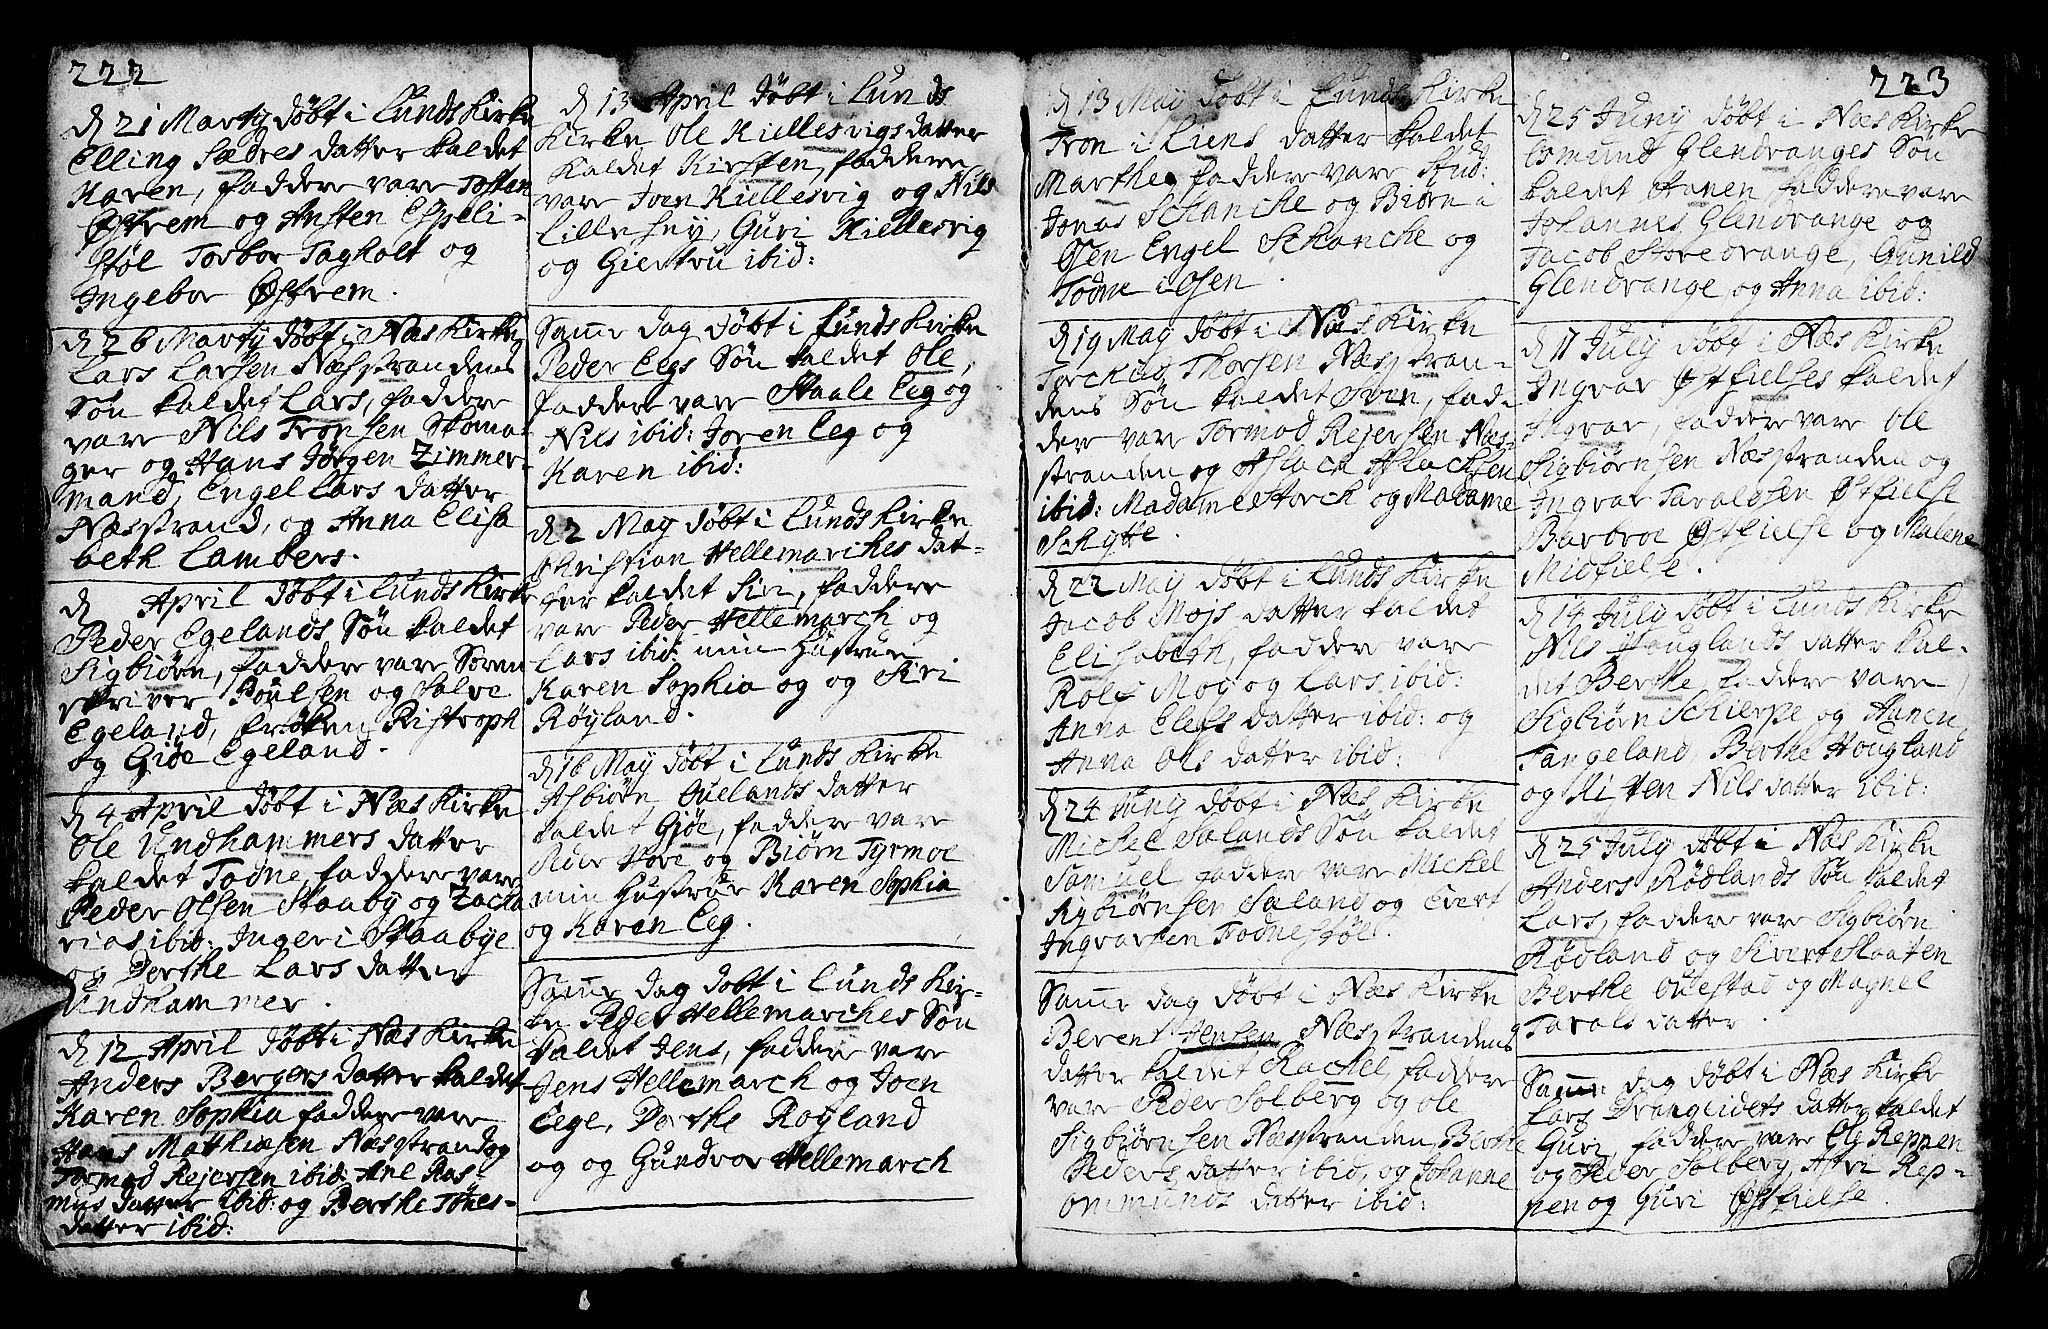 222
d 21 Marty døbt i Lunds Kirke
Elling Sædres datter kaldet
Karen, faddere vare Tosten
Østrem og Austen Espeli-
støl Torbor Tagholt og
Ingebor Østrem.
d 26 Marty døbt i Næs Kirke
Lars Larsen Næsstrandens
Søn kaldet Lars, faddere
vare Nils Tronsen Skoma-
ger og Hans Jørgen Zimmer-
mand, Engel Lars datter
Næsstrand, og Anna Elisa
beth Lambers.
d April døbt i Lunds Kirke
Peder Egelands Søn kaldet
Sigbiørn, faddere vare Soren
skriver Poulsen og Salve
Egeland, frøken Ristroph
og Giøe Egeland.
d 4 April døbt i Næs Kirke
Ole Undhammers datter
kaldet Todne, faddere vare
Peder Olsen Staaby og Zacha
rias ibid: Inger i Staabye
og Berthe Lars datter
Undhammer.
d 12 April døbt i Næs Kirke
Anders Bergers datter kaldet
Karen Sophia faddere vare
Hans Matthiasen Næsstrand og
Tormod Rejersen ibid: Ane Ras-
mus datter ibid: og Berthe Tønes-
datter ibid:
d 13 April døbt i Lunds
Kirke Ole Kiellesvigs datter
kaldet Kirsten, faddere
vare Joen Kiellesvig og Nils
Lillesøy, Guri Kiellesvig
og Giertru ibid:
Samme dag døbt i Lunds Kirke
Peder Eegs Søn kaldet Ole,
faddere vare Staale Eeg og
Nils ibid: Joren Eeg og
Karen ibid:
d 2 May døbt i Lunds Kirke
Christian Hellemarches dat-
ter kaldet Siri, faddere
vare Peder Hellemarch og
Lars ibid: min Hustrue
Karen Sophia og og Siri
Røyland.
d 16 May døbt i Lunds Kirke
Asbiørn Quelands datter
kaldet Giøe, faddere vare
Peder Hove og Biørn Tyrmoe
min Hustrue Karen Sophia
og Karen Eeg.
Samme dag døbt i Lunds Kir-
ke Peder Hellemarches Søn
kaldet Jens, faddere vare
Jens Hellemarch og Joen
Eege, Dorthe Røyland
og og Gundvor Hellemarch
223
d 13 May døbt i Lunds Kirke
Tron i Liens datter kaldet
Marthe, faddere vare Stud:
Jonas Schancke og Biørn i
Osen Engel Schancke og
Todne i Osen.
d 19 May døbt i Næs Kirke
Torckild Thorsen Næsstran-
dens Søn kaldet Sven, fad-
dere vare Tormod Rejersen Næs-
stranden og Aslach Aslachsen
ibid: Madame Storch og Madame
Schytte.
d 22 May døbt i Lunds Kirke
Jacob Mojs datter kaldet
Elisabeth, faddere vare
Rolf Moi og Lars ibid:
Anna Elefs datter ibid: og
Anna Ols datter ibid:
d 24 Juny døbt i Næs Kirke
Michel Salands Søn kaldet
Samuel faddere vare Michel
Sigbiørnsen Saland og Evert
Ingvarsen Todnestøl.
Samme dag døbt i Næs Kirke
Berent Jensen Næsstrandens
datter kaldet Rachel, faddere
vare Peder Solberg og Ole
Sigbiørnsen Næsstranden, Berthe
Peders datter ibid, og Johanne
Ommunds datter ibid:
d 25 Juny døbt i Næs Kirke
Esmund Glendranges Søn
kaldet Hanen faddere vare
Johannes Glendrange og
Jacob Storedrange, Gunild
Glendrange og Anna ibid:
d 11 July døbt i Næs Kirke
Ingvar Østfielses kaldet
Ingvar, faddere vare Ole
Sigbiørnsen Næsstranden og
Ingvar Taraldsen Østfielse
Barbroe Østfielse og Malene
Midfielse.
d 14 July døbt i Lunds Kirke
Nils Houglands datter kal-
det Berthe, faddere vare
Sigbiørn Schierpe og Hanen
Tangeland, Berthe Hougland
og Kisten Nils datter ibid:
d 25 July døbt i Næs Kirke
Anders Rødlands Søn kaldet
Lars, faddere vare Sigbiørn
Rødland og Sivert Slaaten
Berthe Ovestad og Magnel
Tarals datter.
Samme dag døbt i Næs Kirke
Lars Drangeidets datter kaldet
Guri, faddere vare Elg Reppen
og Peder Solberg, Astri Rep-
pen og Guri Østfielse.